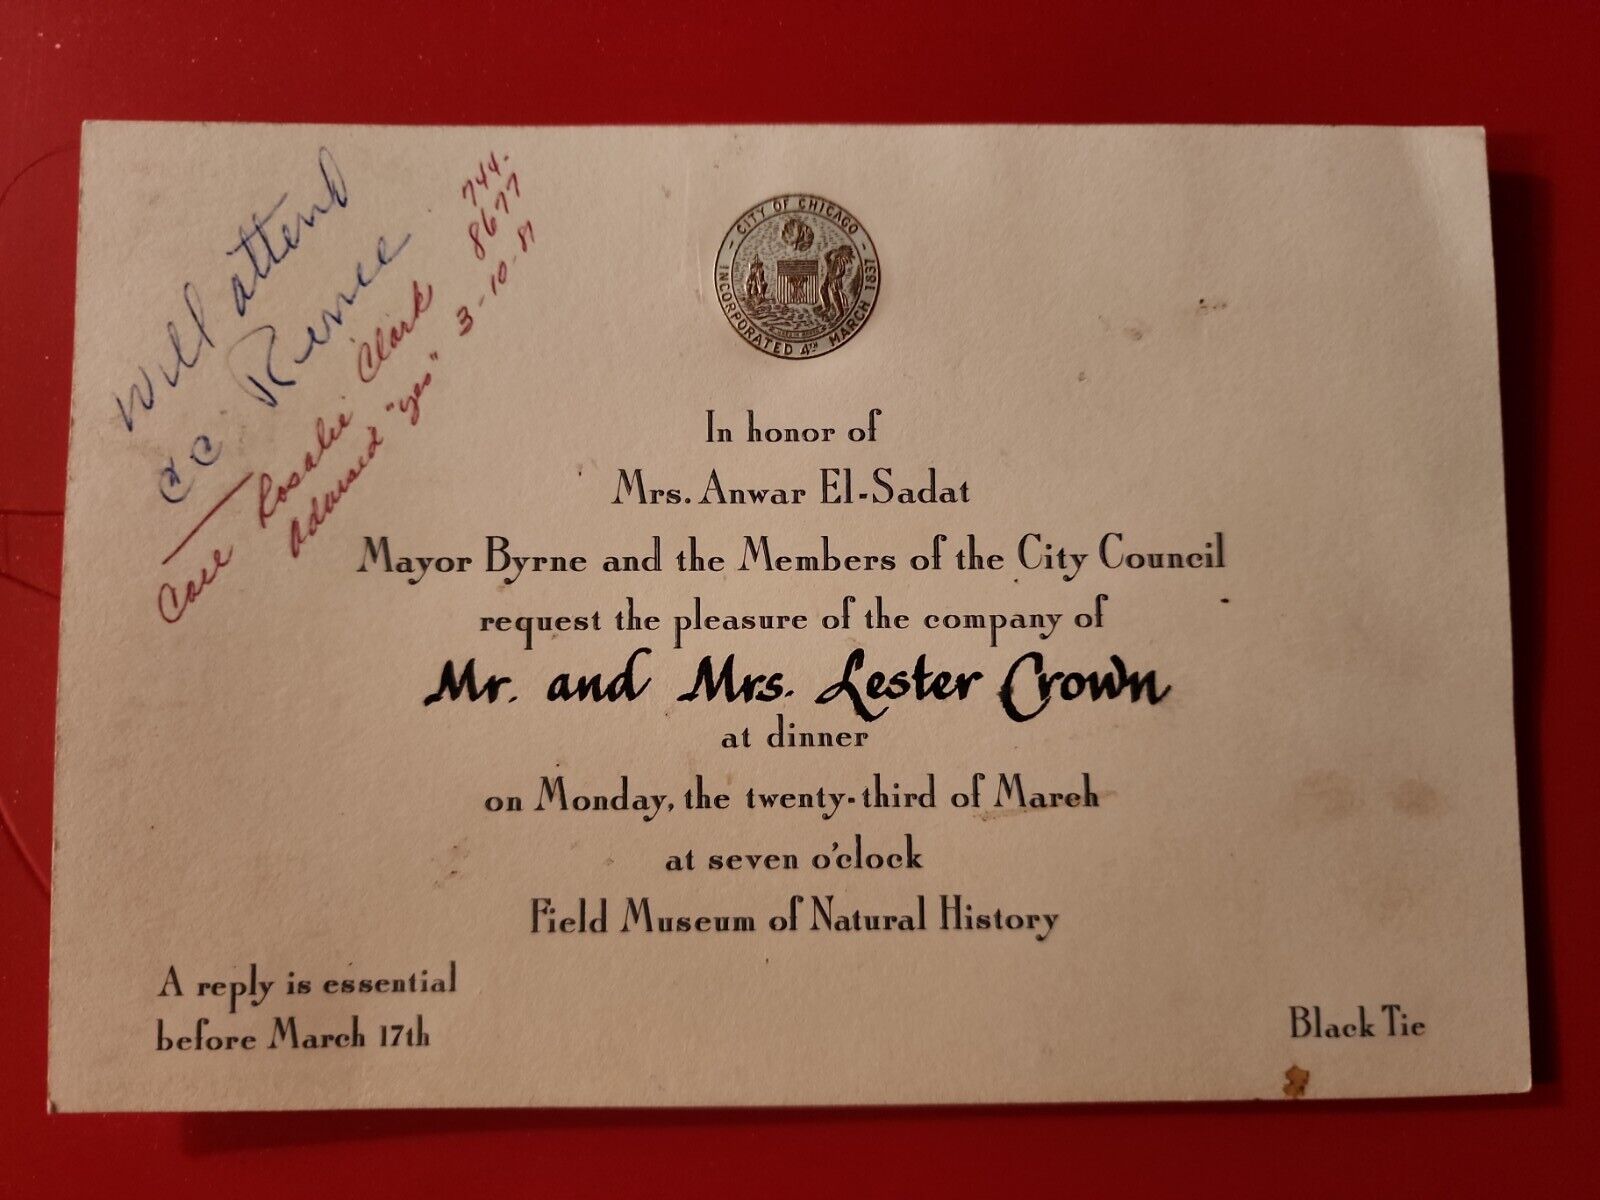 Will attend
cc Renee
Call Rosalie Clark 744-
8677
advised "yes" 3-10-81
CITY OF CHICAGO
INCORPORATED 4TH MARCH 1837
In honor of
Mrs. Anwar El-Sadat
Mayor Byrne and the Members of the City Council
request the pleasure of the company of
Mr. and Mrs. Lester Crown
at dinner
on Monday, the twenty-third of March
at seven o'clock
Field Museum of Natural History
A reply is essential
before March 17th
Black Tie